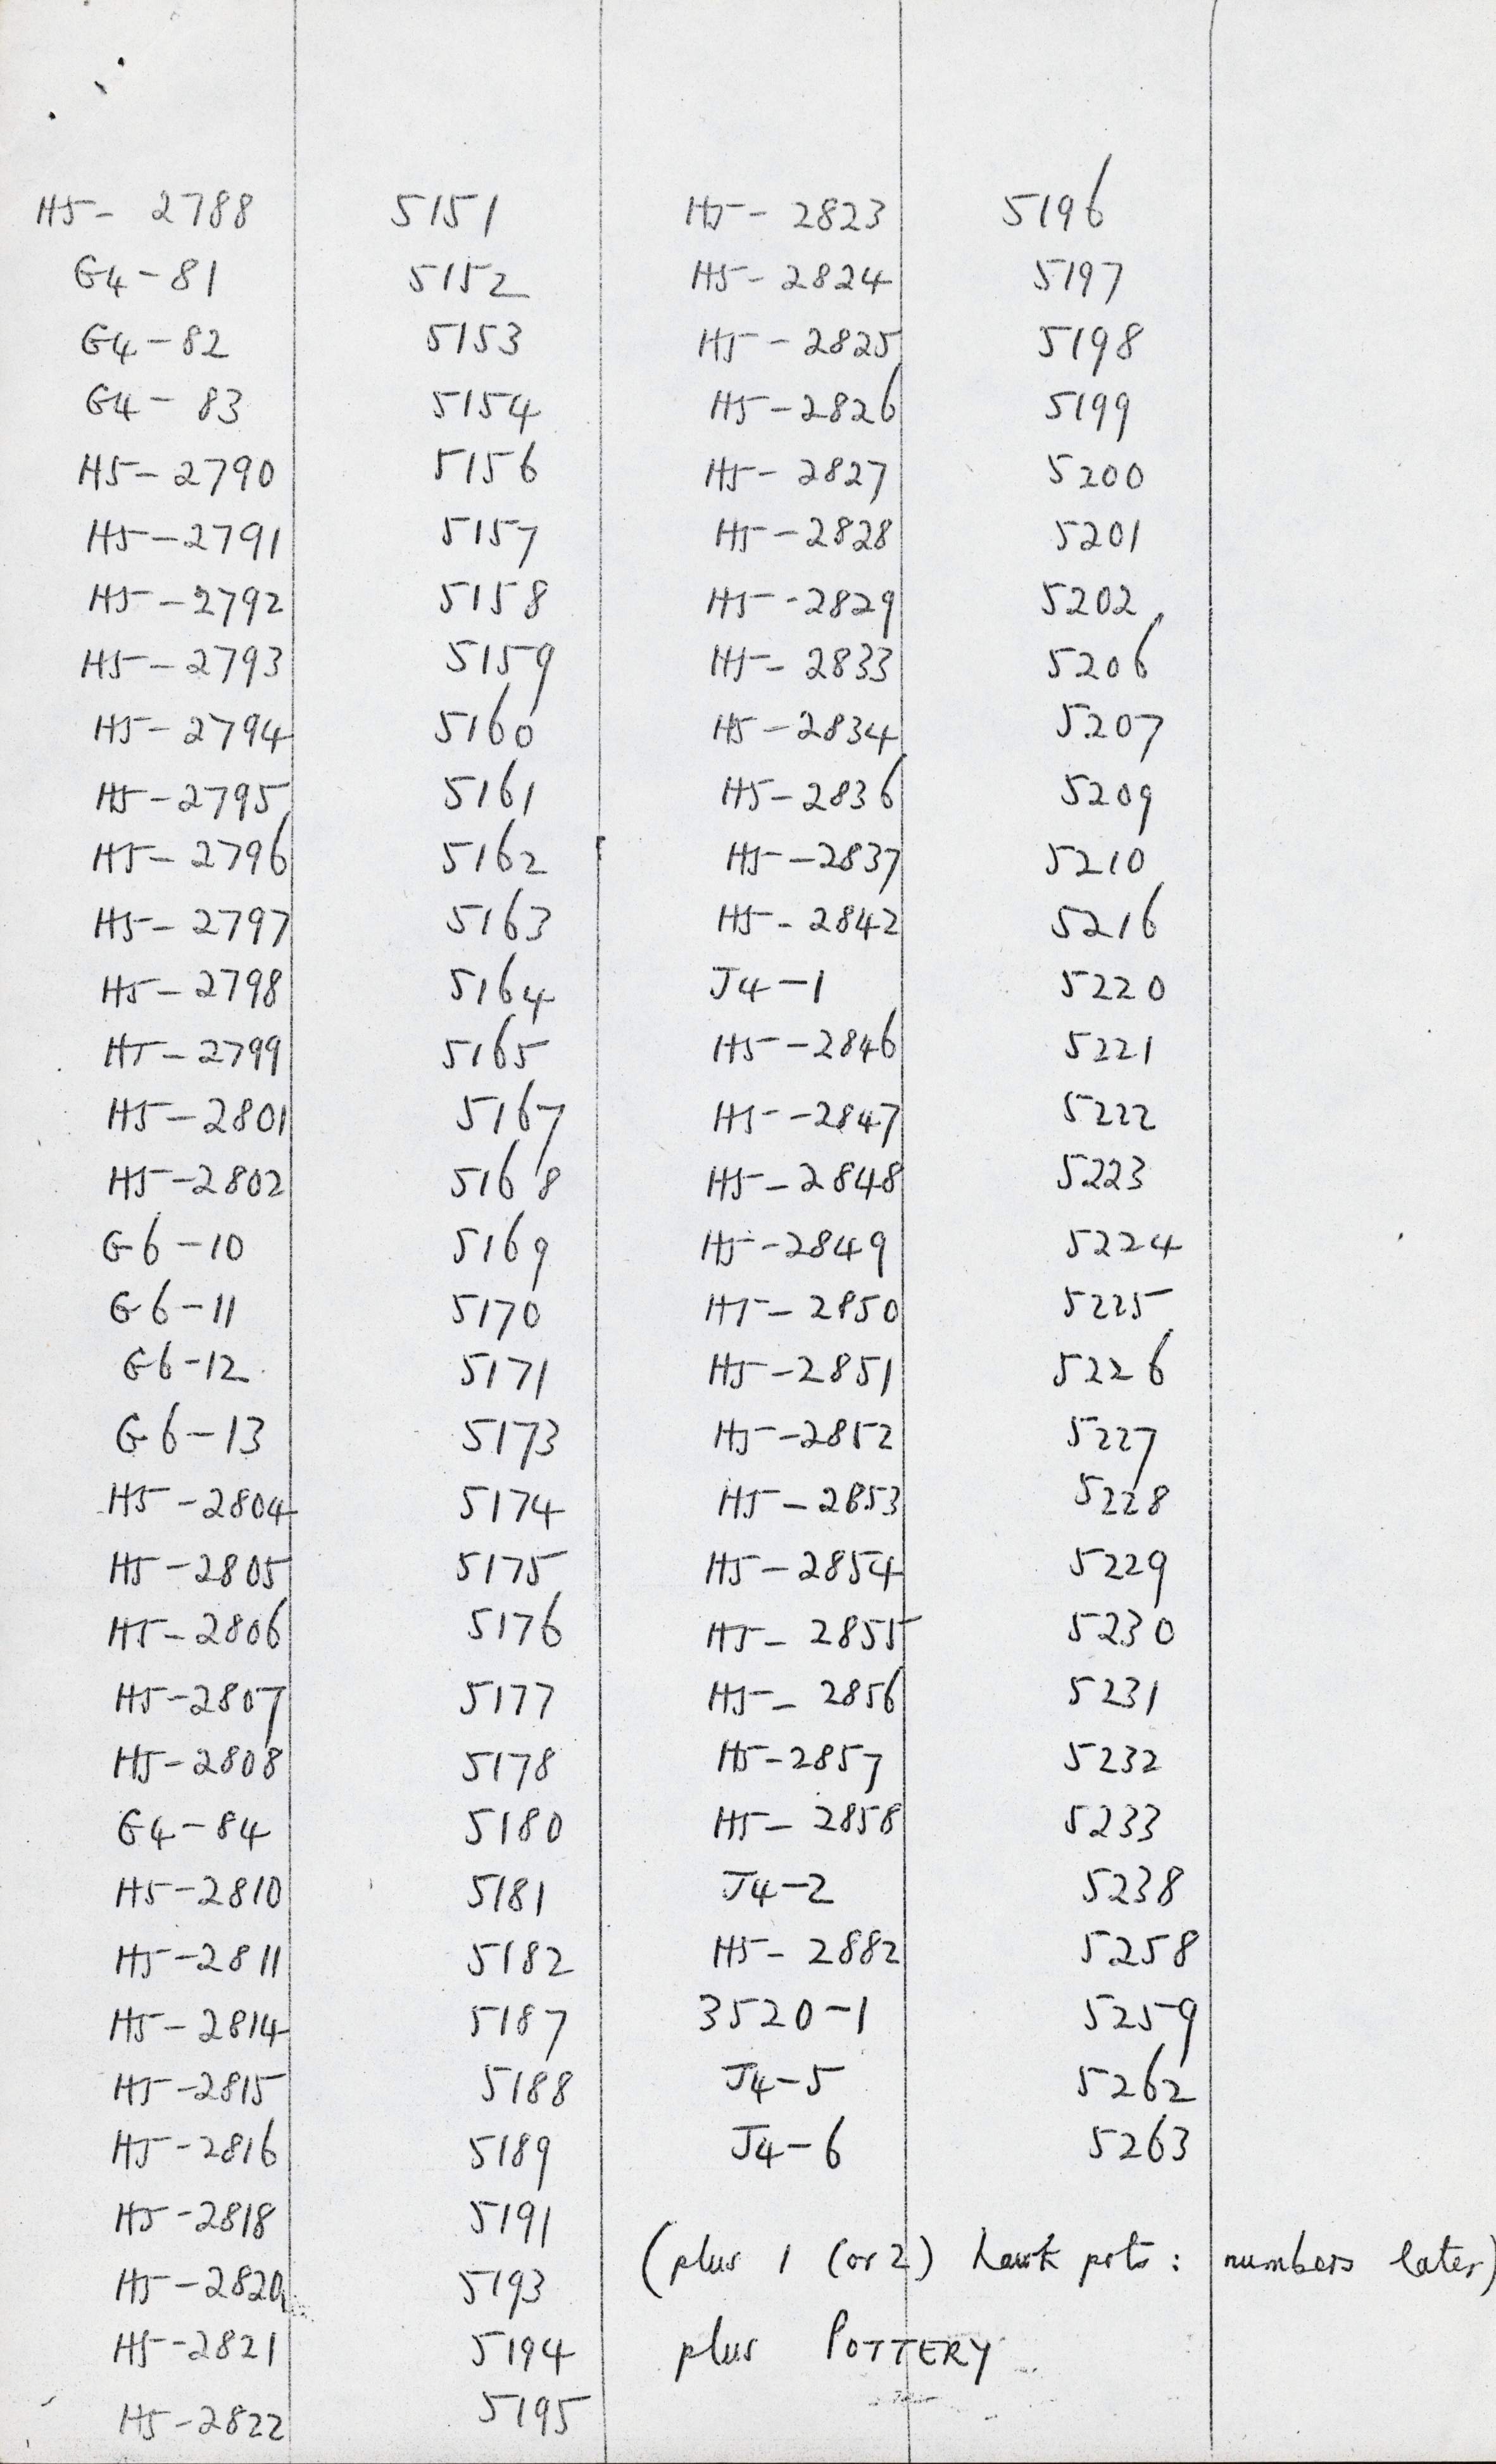 H5- 2788 5151
G4-81 5152
G4-82 5153
G4-83 5154
H5-2790 5156
H5-2791 5157
H5-2792 5158
H5-2793 5159
H5-2794 5160
H5-2795 5161
H5-2796 5162
H5-2797 5163
H5-2798 5164
H5-2799 5165
H5-2801 5167
H5-2802 5168
G6-10 5169
G6-11 5170
G6-12 5171
G6-13 5173
H5-2804 5174
H5-2805 5175
H5-2806 5176
H5-2807 5177
H5-2808 5178
G4-84 5180
H5-2810 5181
H5-2811 5182
H5-2814 5187
H5-2815 5188
H5-2816 5189
H5-2818 5191
H5-2820 5193
H5-2821 5194
H5-2822 5195
H5-2823 5196
H5-2824 5197
H5-2825 5198
H5-2826 5199
H5-2827 5200
H5-2828 5201
H5-2829 5202
H5-2833 5206
H5-2834 5207
H5-2836 5209
H5-2837 5210
H5-2842 5216
J4-1 5220
H5-2846 5221
H5-2847 5222
H5-2848 5223
H5-2849 5224
H5-2850 5225
H5-2851 5226
H5-2852 5227
H5-2853 5228
H5-2854 5229
H5-2855 5230
H5-2856 5231
H5-2857 5232
H5-2858 5233
J4-2 5238
H5-2882 5258
3520-1 5259
J4-5 5262
J4-6 5263
(plus 1 (or 2) hawk pots: numbers later)
plus POTTERY